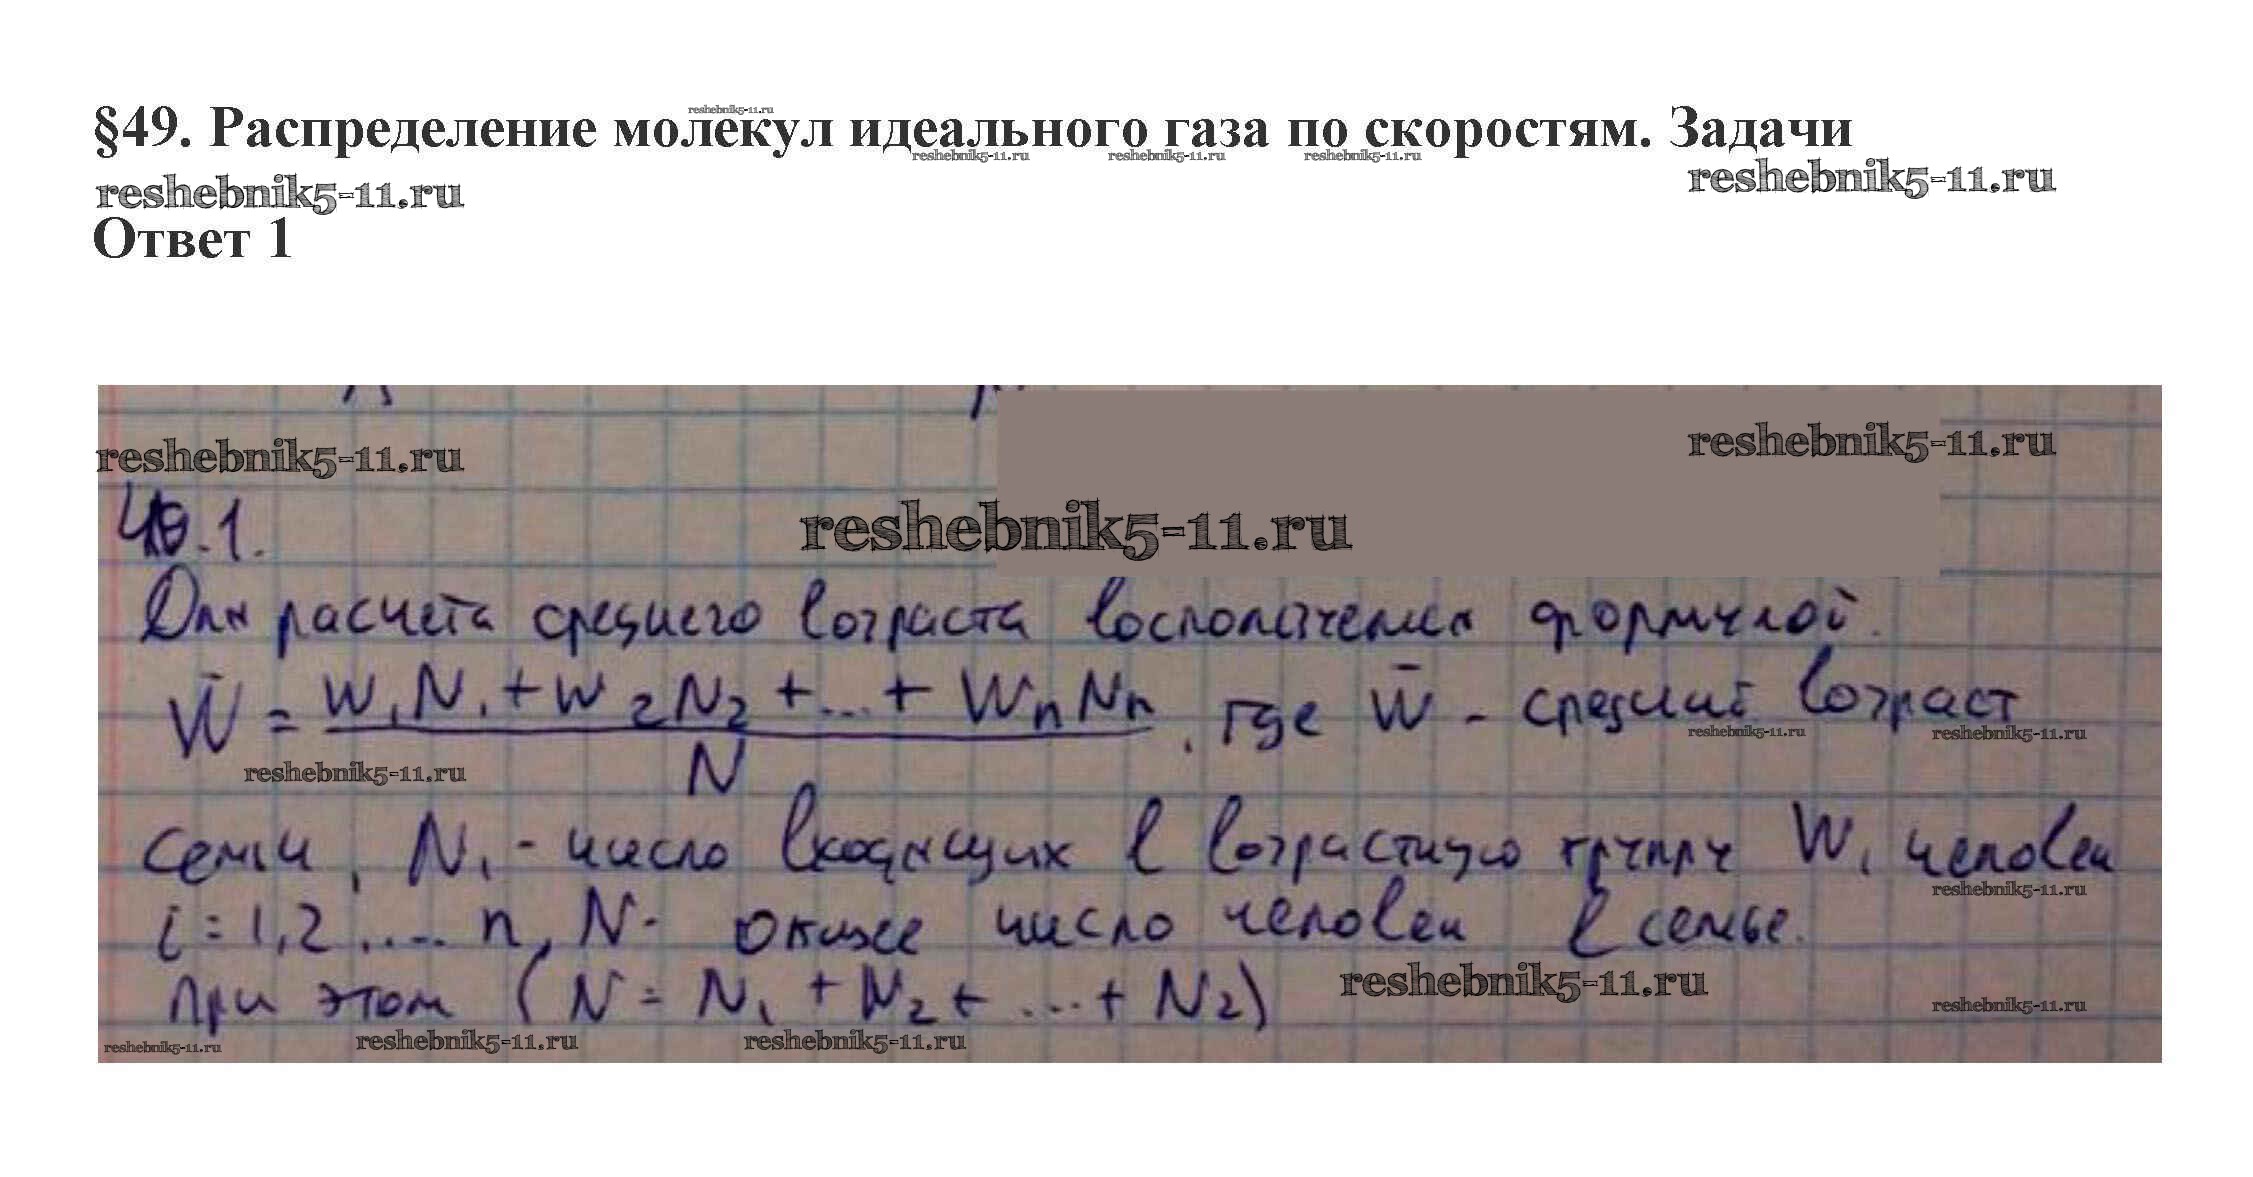 §49. Распределение молекул идеального газа по скоростям. Задачи
reshebnik5-11.ru
reshebnik5-11.ru reshebnik5-11.ru reshebnik5-11.ru
reshebnik5-11.ru
reshebnik5-11.ru
Ответ 1
reshebnik5-11.ru
reshebnik5-11.ru
reshebnik5-11.ru
49.1.
Для расчета среднего возраста воспользуемся формулой.
W̄ = (W₁N₁ + W₂N₂ + ... + WₙNₙ) / N, где W̄ - средний возраст
reshebnik5-11.ru reshebnik5-11.ru
reshebnik5-11.ru
семьи, Nᵢ - число входящих в возрастную группу Wᵢ человек
reshebnik5-11.ru
i = 1,2 .... n, N - общее число человек в семье.
reshebnik5-11.ru
При этом (N = N₁ + N₂ + ... + N₂)
reshebnik5-11.ru
reshebnik5-11.ru reshebnik5-11.ru reshebnik5-11.ru